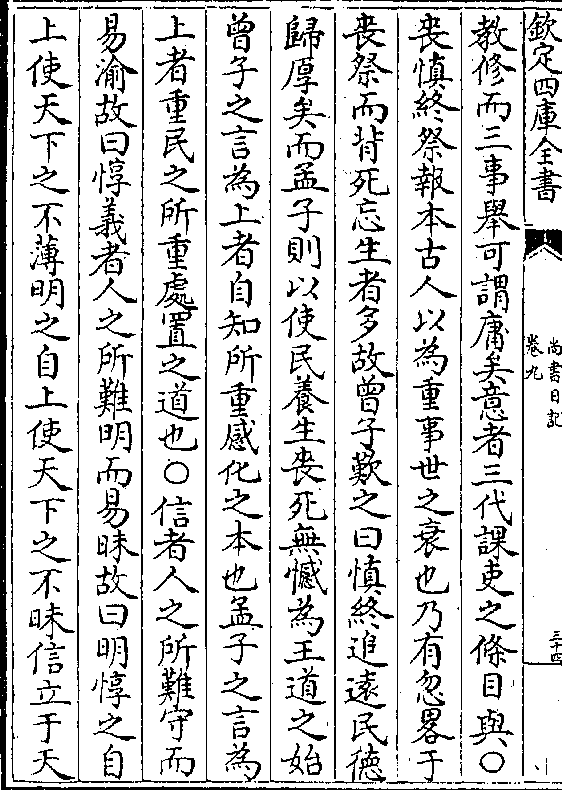 欽定四庫全書
尚書日記
卷九
三十四
教修而三事舉可謂庸矣意者三代課吏之條目與○
喪慎終祭報本古人以為重事世之衰也乃有忽畧于
喪祭而背死忘生者多故曾子歎之曰慎終追遠民徳
歸厚矣而孟子則以使民養生喪死無憾為王道之始
曾子之言為上者自知所重感化之本也孟子之言為
上者重民之所重處置之道也○信者人之所難守而
易渝故曰惇義者人之所難明而易昧故曰明惇之自
上使天下之不薄明之自上使天下之不昧信立于天